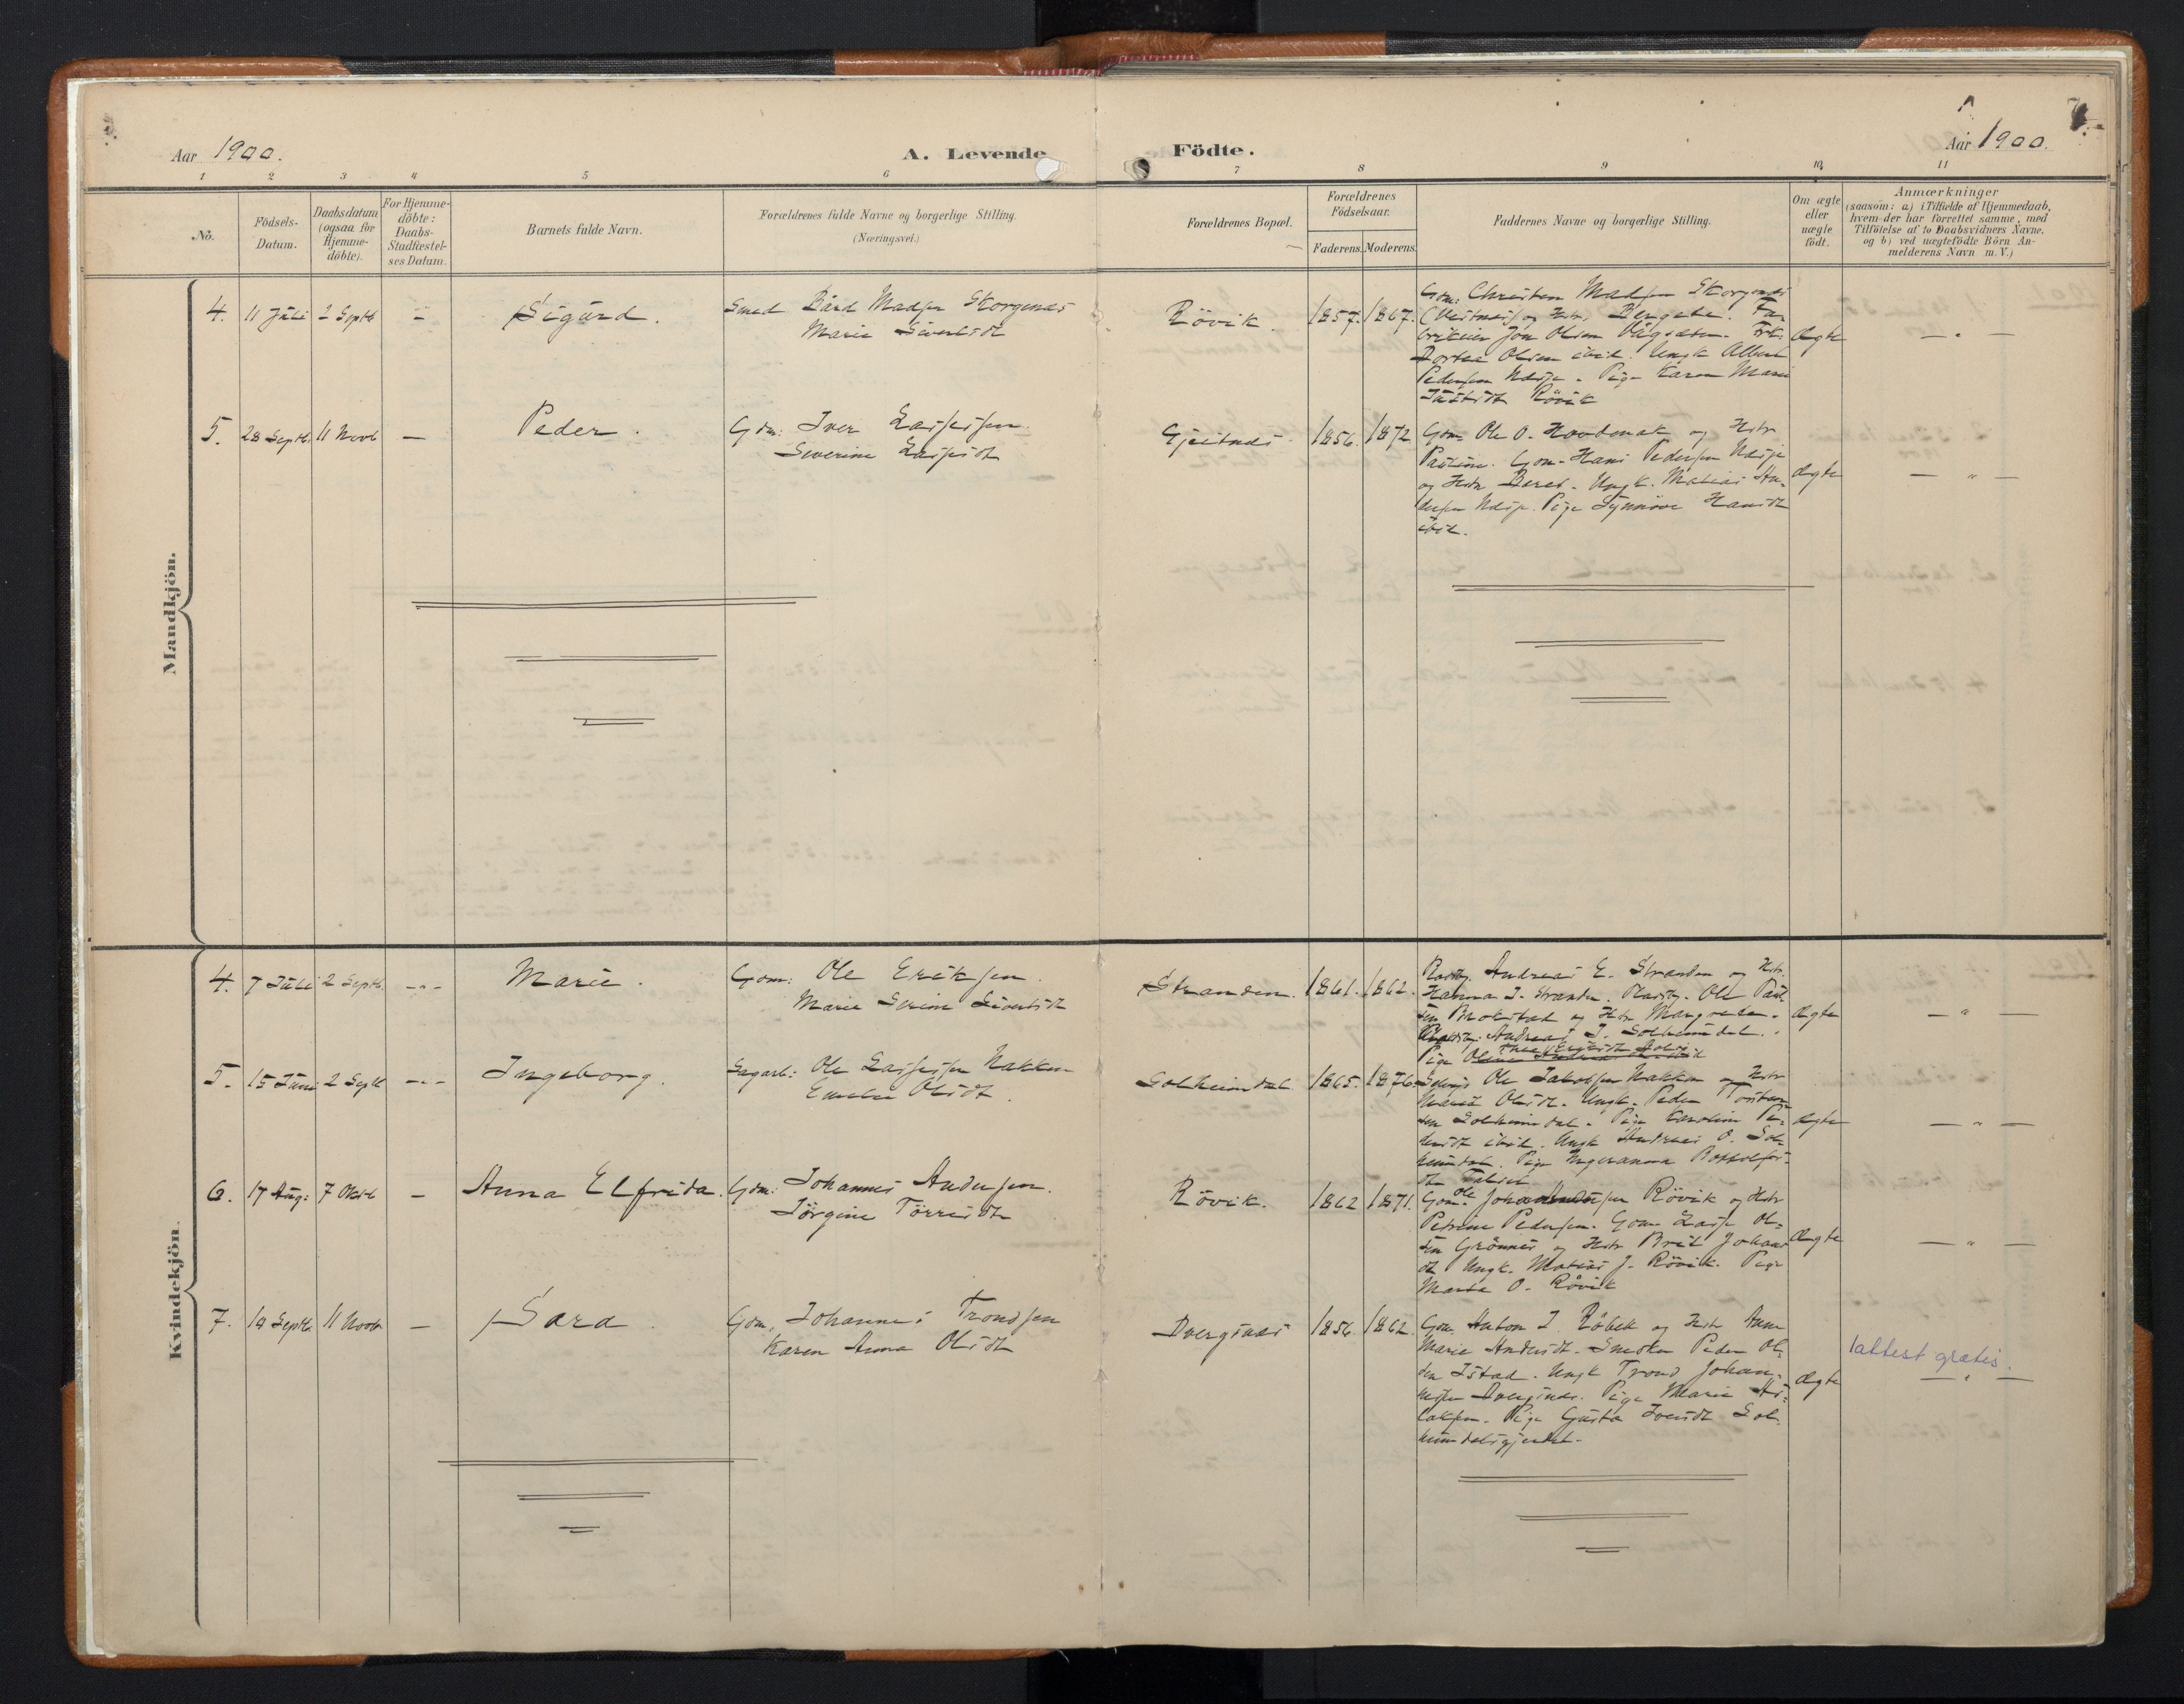 Aar 1900.
A. Levende
Födte.
Aar 1900.
7
1 2 3 4 5 6 7 8 9 10 11
No.
Födsels-
Datum.
Daabsdatum
(ogsaa for
Hjemme-
döbte).
For Hjemme-
döbte:
Daabs-
Stadfæstel-
ses Datum.
Barnets fulde Navn.
Forældrenes fulde Navne og borgerlige Stilling.
(Næringsvei.)
Forældrenes Bopæl.
Forældrenes
Födselsaar.
Faderens. Moderens.
Faddernes Navne og borgerlige Stilling.
Om ægte
eller
uægte
födt.
Anmærkninger
(saasom: a) i Tilfælde af Hjemmedaab,
hvem der har forrettet samme, med
Tilföielse af to Daabsvidners Navne.
og b) ved uægtefödte Börn An-
melderens Navn m. V.)
Mandkjön.
4. 11 Juli 2 Septb - Sigurd.
Smed Bård Madsen Skorgenæs
Marie Sivertsdt
Rövik. 1857. 1867.
Gbm: Christen Madsen Skorgenæs
og Hstr. Bergete. Fa-
brikeier Jon Olsen Vågsæter. Frk.
Dortea Olsen ibid. Ungk Albert
Pedersen Næsje. Pige Karen Marie
Rövik
Ægte
— " —
5. 28 Septb. 11 Novb — Peder.
Gbm: Iver Lassesen.
Severine Larsdt
Gjeitnæs. 1856. 1872
Gbm. Ole O. Hovdenak og Hstr
Pauline. Gbm. Hans Pedersen Næsje
og Hstr Beret. Ungk. Matias An-
dersen Næsje. Pige Synnöve Hansdt
ibid.
Ægte
— " —
Kvindekjön.
4. 7 Juli 2 Septb. -"- Marie.
Gbm: Ole Eriksen.
Marie Serine Sivertsdt
Stranden. 1861. 1862.
Andreas E. Stranden og Hstr.
Hanna J. Stranden. Ole Paul-
sen Brokstad og Hstr Margrethe.
Andreas J. Solheimdal.
Pige
Ægte
— " —
5. 15 Juni 2 Septb -"- Ingeborg.
Sagarb: Ole Lassesen Nakken
Emelie Olsdt.
Solheimdal 1865. 1876.
Ole Jakobsen Nakken og Hstr
Marit Olsdt. Ungk. Peder Tosten-
sen Solheimdal. Pige Karoline Pe-
dersdt ibid. Ungk Andreas O. Sol-
heimdal. Pige Ingeranna
Ægte
— " —
6. 17 Aug: 7 Oktb - Anna Elfrida.
Gbm: Johannes Andersen.
Jörgine Törresdt
Rövik. 1862 1871.
Gbm. Ole Rövik og Hstr
Petrine Pedersen. Gbm. Lasse Ol-
sen Grönnes og Hstr Brit Johans
dt Ungk. Matias J. Rövik. Pige
Marta O. Rövik
Ægte
— " —
7. 18 Septb. 11 Novb - Sara.
Gbm. Johannes Trondsen
Karen Anna Olsdt
Dvergsnæs 1856. 1862.
Gbm. Anton I. Röbek og Hstr Anne
Marie Andersdt. Snedker Peder Ol-
sen Istad. Ungk Trond Johan-
nesen Dvergsnæs. Pige Marie As-
laksen. Pige Gusta Iversdt Sol-
heimdalsgjerdet.
Ægte
1 attest gratis.
— " —